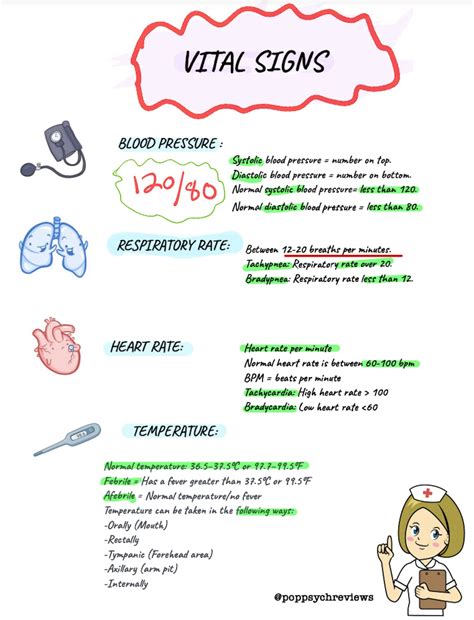 VITAL SIGNS
BLOOD PRESSURE :
120/80
Systolic blood pressure = number on top.
Diastolic blood pressure = number on bottom.
Normal systolic blood pressure= less than 120.
Normal diastolic blood pressure = less than 80.
RESPIRATORY RATE:
Between 12-20 breaths per minutes.
Tachypnea: Respiratory rate over 20.
Bradypnea: Respiratory rate less than 12.
HEART RATE:
Heart rate per minute
Normal heart rate is between 60-100 bpm
BPM = beats per minute
Tachycardia: High heart rate > 100
Bradycardia: Low heart rate <60
TEMPERATURE:
Normal temperature: 36.5-37.5°C or 97.7-99.5°F
Febrile = Has a fever greater than 37.5°C or 99.5°F
Afebrile = Normal temperature/no fever
Temperature can be taken in the following ways:
-Orally (Mouth)
-Rectally
-Tympanic (Forehead area)
-Axillary (arm pit)
-Internally
@poppsychreviews